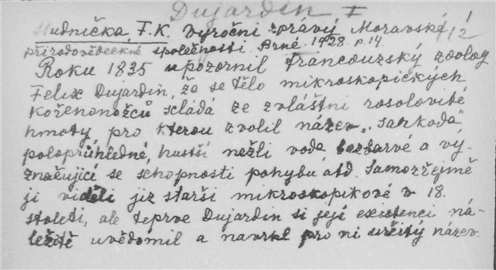 Dujardin I
Studnička, F.K. Výroční zprávy Moravské
12
přírodovědecké společnosti Brně 1928. p.14.
Roku 1835 upozornil francouzský zoolog
Felix Dujardin, že se tělo mikroskopických
kořenonožců skládá ze zvláštní rosolovité
hmoty, pro kterou zvolil název „Sarkoda"
poloprůhledné, hustší nežli voda bezbarvé a vy-
značující se schopností pohybu atd. Samozřejmě
ji viděli již starší mikroskopikové v 18.
století, ale teprve Dujardin si její existenci ná-
ležitě uvědomil a navrhl pro ni určitý název.